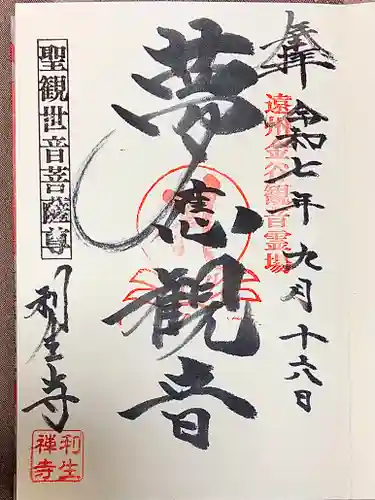 奉拝
遠州金谷観音霊場
令和七年九月十六日
夢應観音
聖観世音菩薩尊
利生寺
利生
禅寺